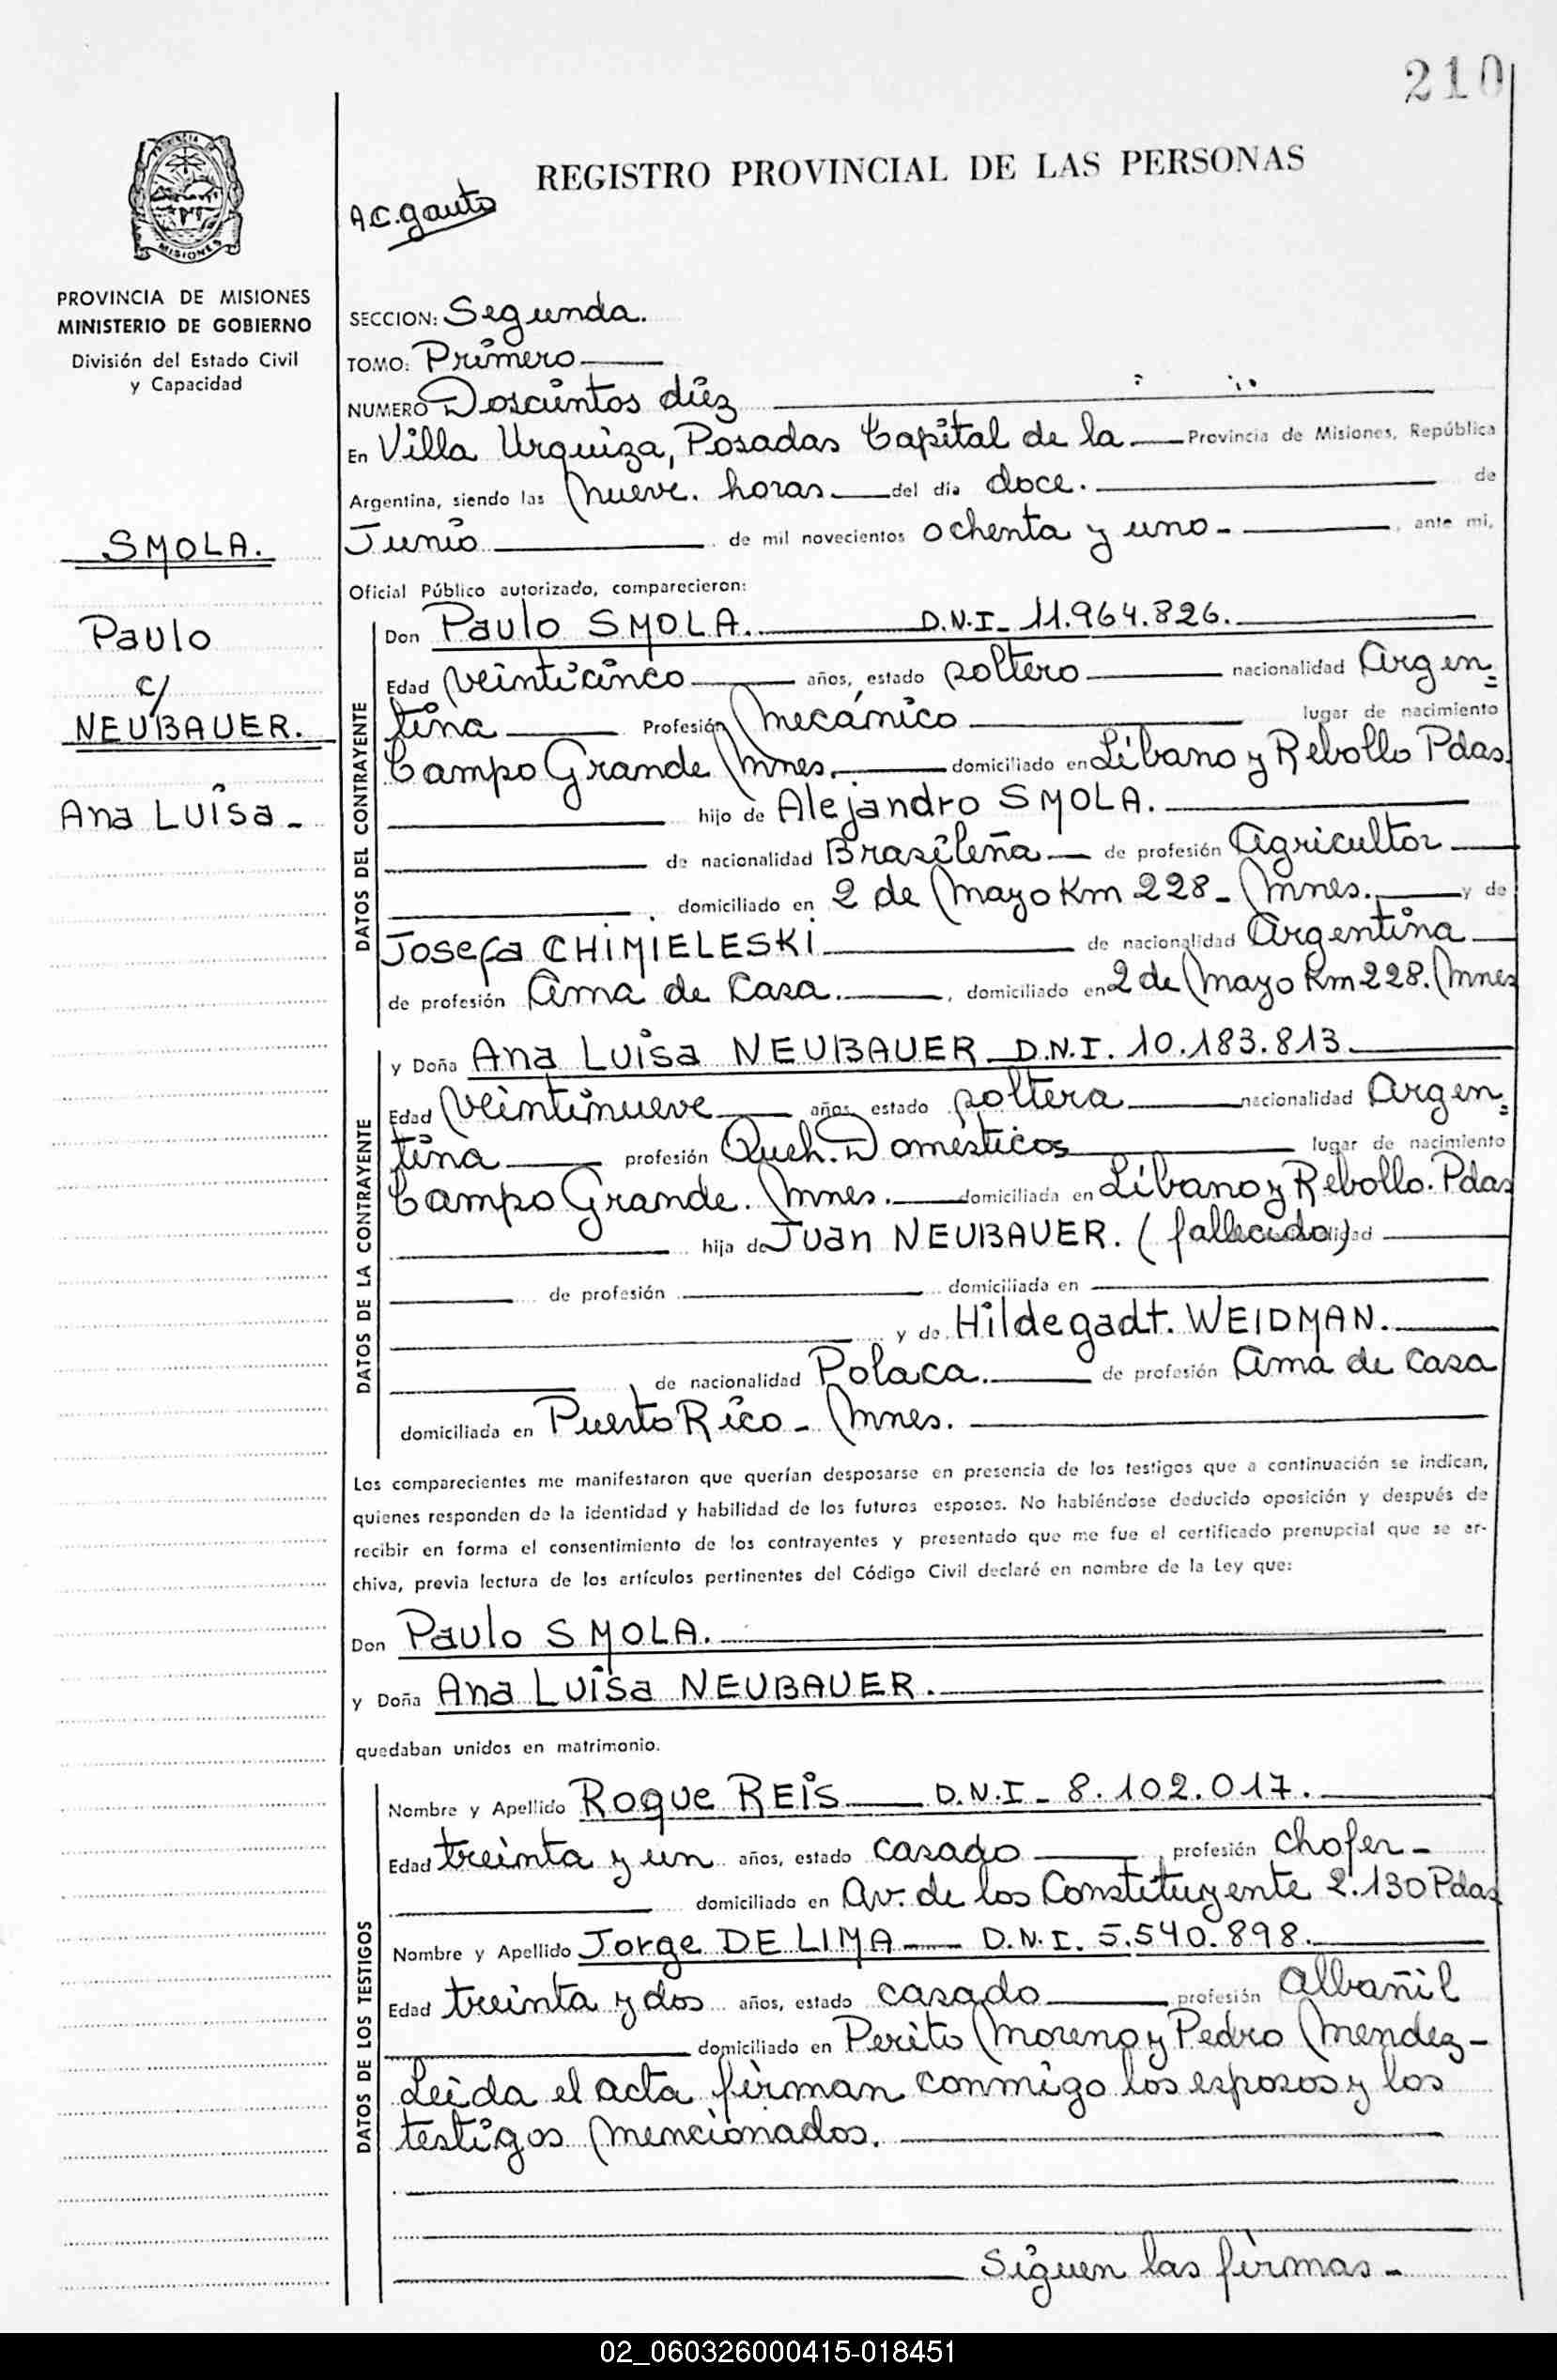 210
REGISTRO PROVINCIAL DE LAS PERSONAS
A.C. Gauto
PROVINCIA DE MISIONES
MINISTERIO DE GOBIERNO
División del Estado Civil
y Capacidad
SMOLA.
Paulo
c/
NEUBAUER.
Ana Luisa -
SECCION: Segunda.
TOMO: Primero
NUMERO Doscientos diez
En Villa Urquiza, Posadas Capital de la Provincia de Misiones, República
Argentina, siendo las nueve. horas del día doce. de
Junio de mil novecientos ochenta y uno - , ante mi,
Oficial Público autorizado, comparecieron:
DATOS DEL CONTRAYENTE
Don Paulo SMOLA. D.N.I- 11.964.826.
Edad veinticinco años, estado soltero nacionalidad Argen=
tina Profesión mecánico lugar de nacimiento
Campo Grande Mnes. domiciliado en Líbano y Rebollo Pdas.
hijo de Alejandro SMOLA.
de nacionalidad Brasileña de profesión Agricultor
domiciliado en 2 de Mayo Km 228 - Mnes. y de
Josefa CHIMIELESKI de nacionalidad Argentina
de profesión Ama de Casa. , domiciliado en 2 de Mayo Km 228. Mnes
DATOS DE LA CONTRAYENTE
y Doña Ana Luisa NEUBAUER D.N.I. 10.183.813
Edad veintinueve años, estado soltera nacionalidad Argen=
tina profesión Queh. Domésticos lugar de nacimiento
Campo Grande. Mnes. domiciliada en Líbano y Rebollo. Pdas
hija de Juan NEUBAUER. (fallecido)
de profesión domiciliada en
y de Hildegadt. WEIDMAN.
de nacionalidad Polaca. de profesión Ama de Casa
domiciliada en Puerto Rico - Mnes.
Los comparecientes me manifestaron que querían desposarse en presencia de los testigos que a continuación se indican,
quienes responden de la identidad y habilidad de los futuros esposos. No habiéndose deducido oposición y después de
recibir en forma el consentimiento de los contrayentes y presentado que me fue el certificado prenupcial que se ar-
chiva, previa lectura de los artículos pertinentes del Código Civil declaré en nombre de la Ley que:
Don Paulo SMOLA.
y Doña Ana Luisa NEUBAUER.
quedaban unidos en matrimonio.
DATOS DE LOS TESTIGOS
Nombre y Apellido Roque REIS D.N.I - 8.102.017.
Edad treinta y un años, estado casado , profesión chofer -
domiciliado en Av. de los Constituyente 2.130 Pdas
Nombre y Apellido Jorge DE LIMA D.N.I. 5.540.898.
Edad treinta y dos años, estado casado profesión Albañil
domiciliado en Perito Moreno y Pedro Mendez -
Leida el acta firman conmigo los esposos y los
testigos mencionados.
Siguen las firmas -
02_060326000415-018451